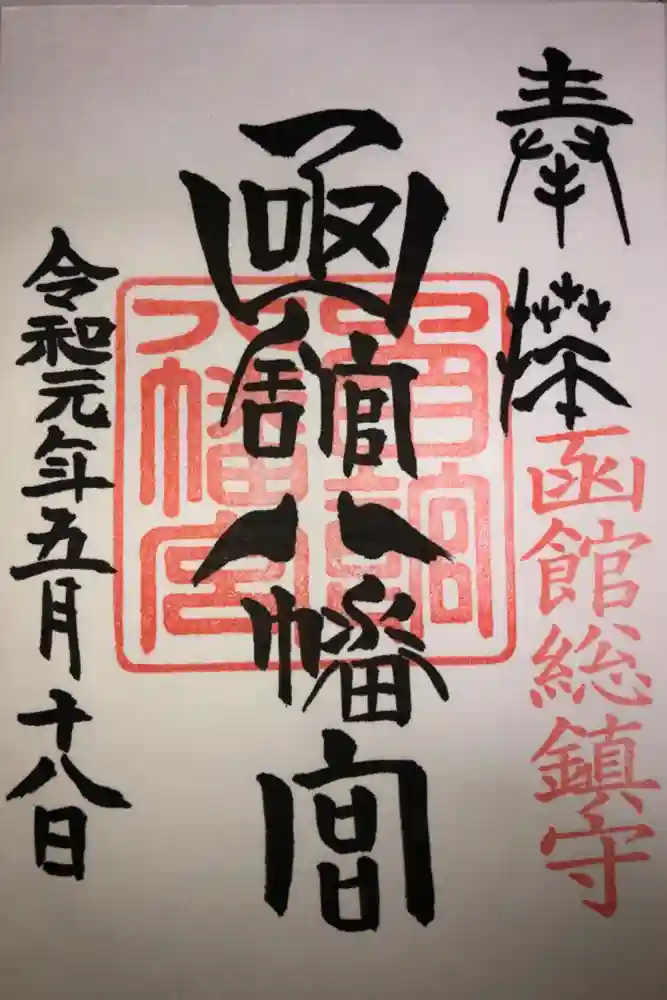 奉拝
函館総鎮守
函館八幡宮
八幡宮
令和元年五月十八日